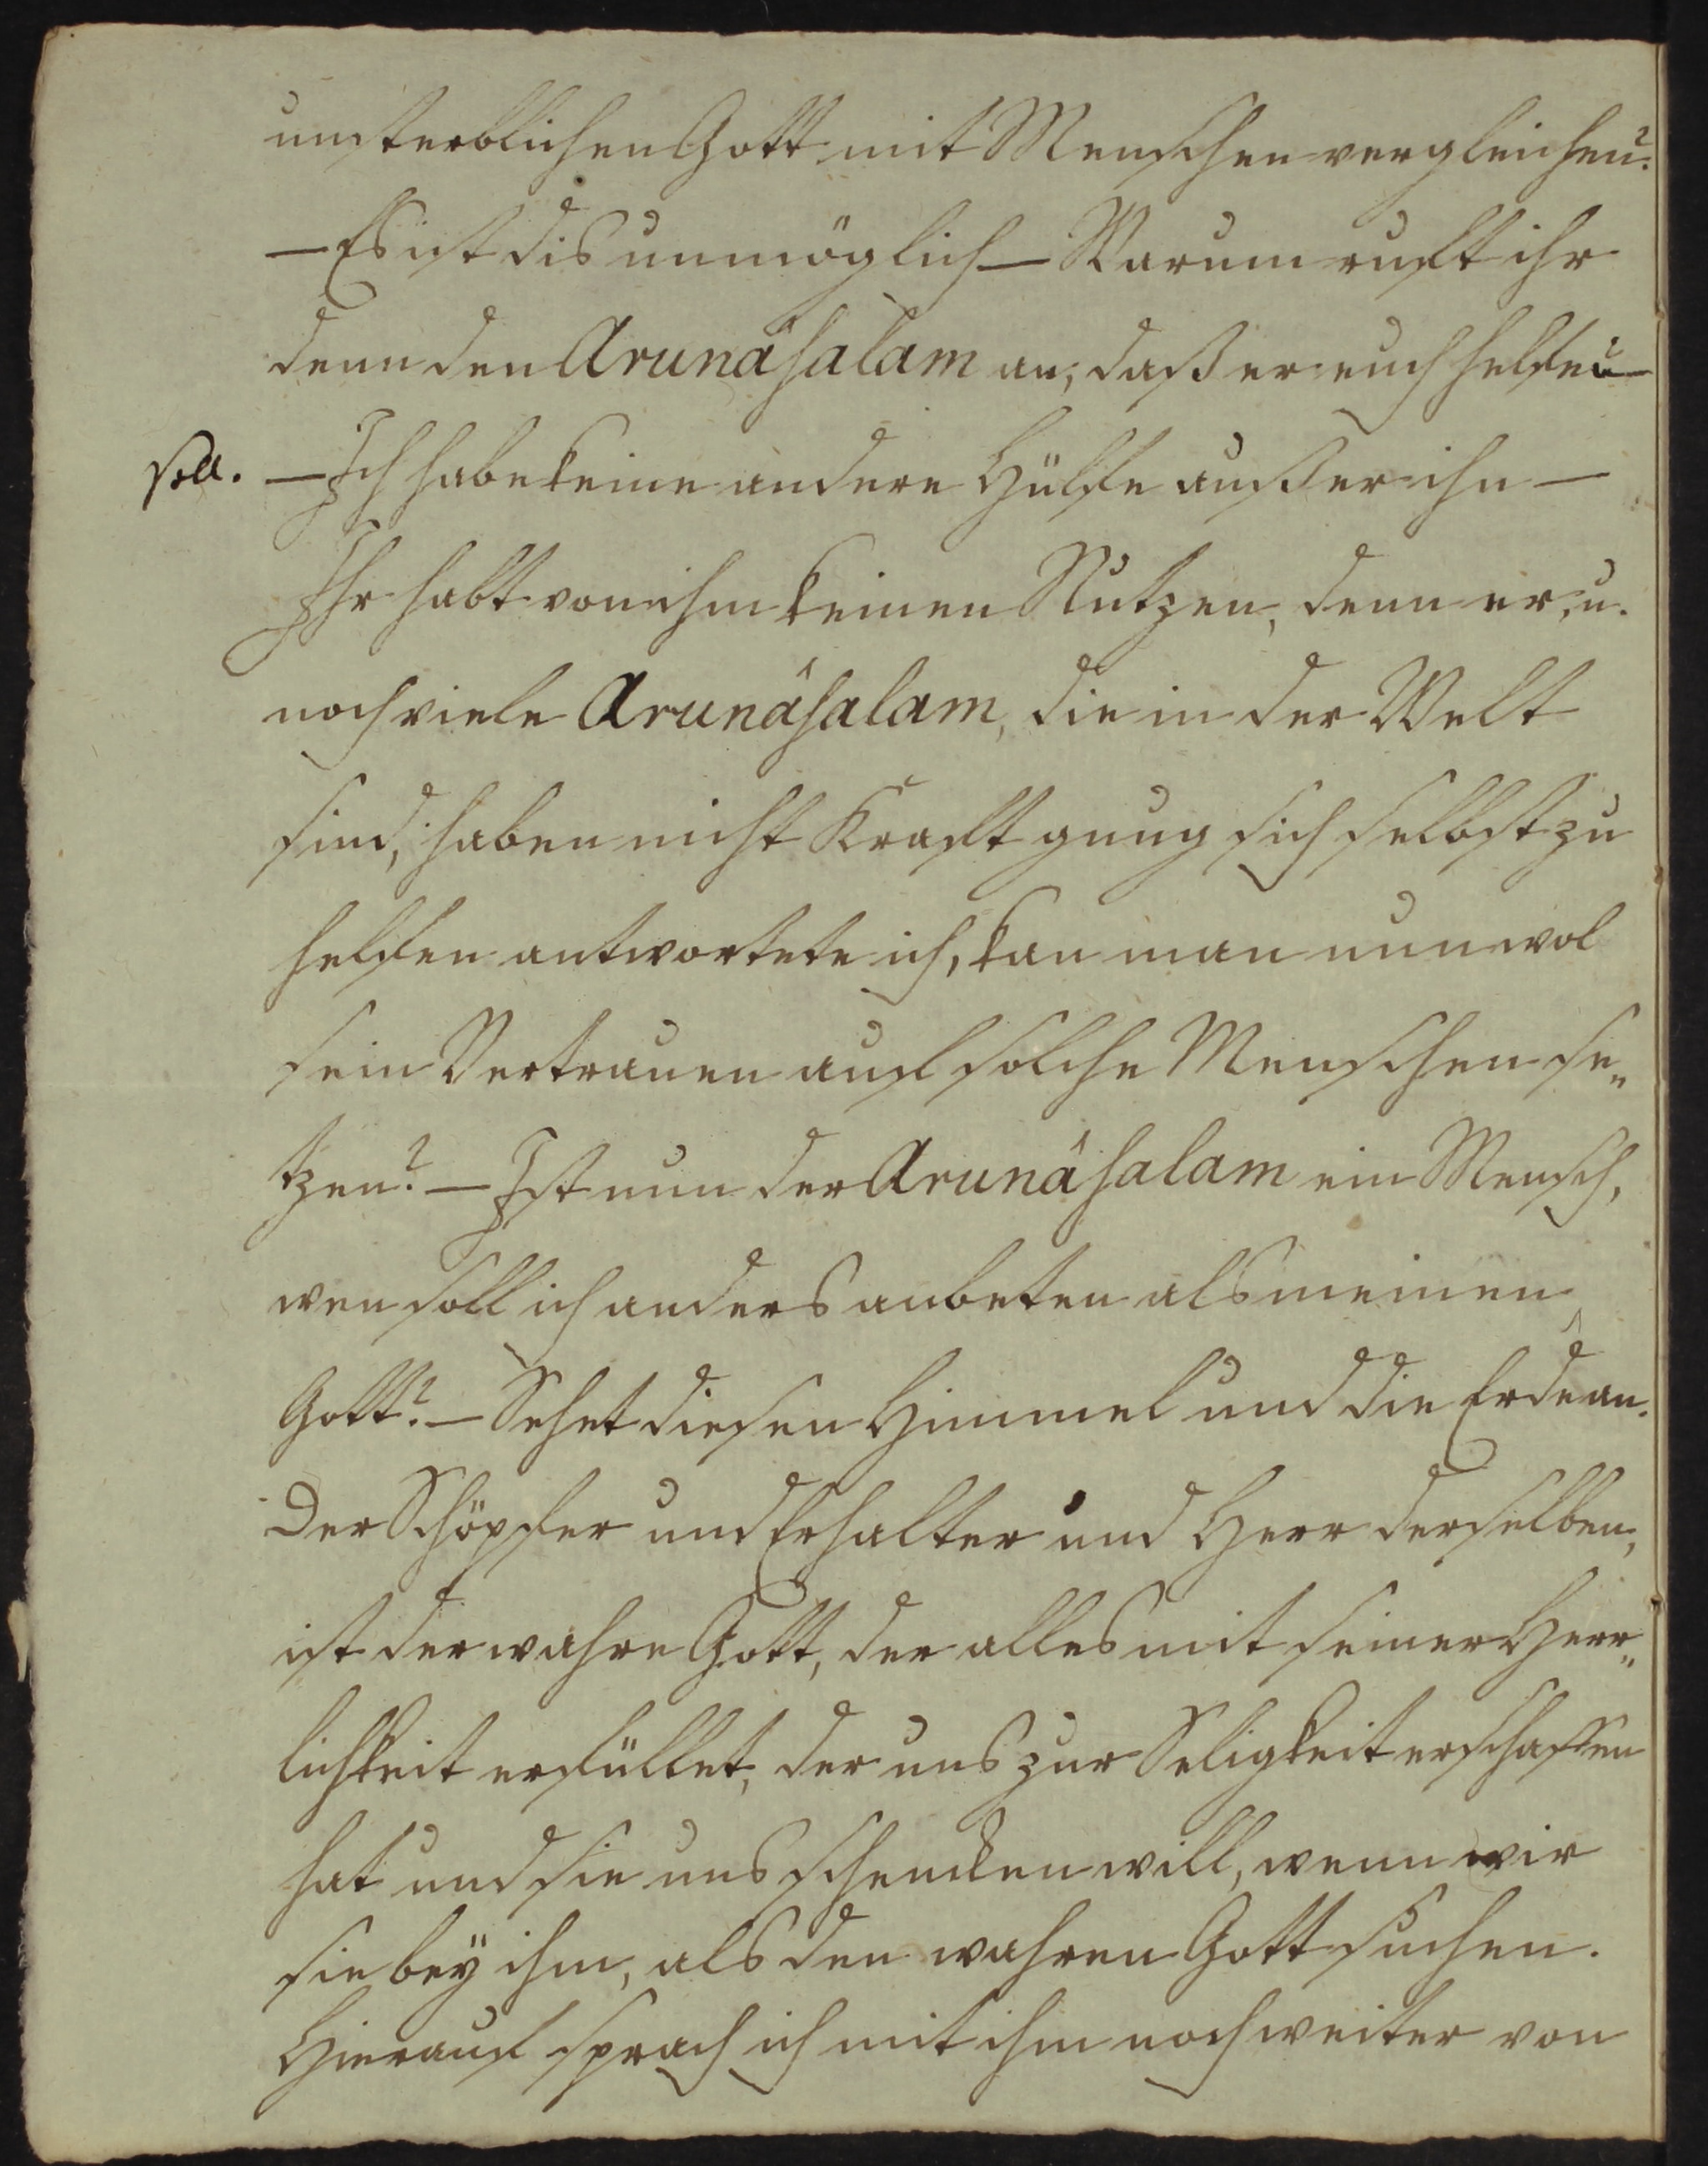 unsterblichen Gott mit Menschen vergleichen?
— Es ist dis unmöglich — Warum ruft ihr
denn den Arunâsalam an, daß er euch helfen
soll. — Ich habe keine andere Hülfe außer ihn —
Ihr habt von ihm keinen Nutzen, denn er, u.
noch viele Arunâsalam, die in der Welt
sind, haben nicht Kraft gnug sich selbst zu
helfen antwortete ich, kan man nun wol
sein Vertrauen auf solche Menschen se„
tzen? — Ist nun der Arunâsalam ein Mensch,
wen soll ich anders anbeten als meinen
Gott? — Sehet diesen Himmel und die Erde an.
Der Schöpfer und Erhalter und Herr derselben,
ist der wahre Gott, der alles mit seiner Herr„
lichkeit erfüllet, der uns zur Seligkeit erschaffen
hat und sie uns schencken will, wenn wir
sie bey ihm, als den wahren Gott suchen.
Hierauf sprach ich mit ihm noch weiter von